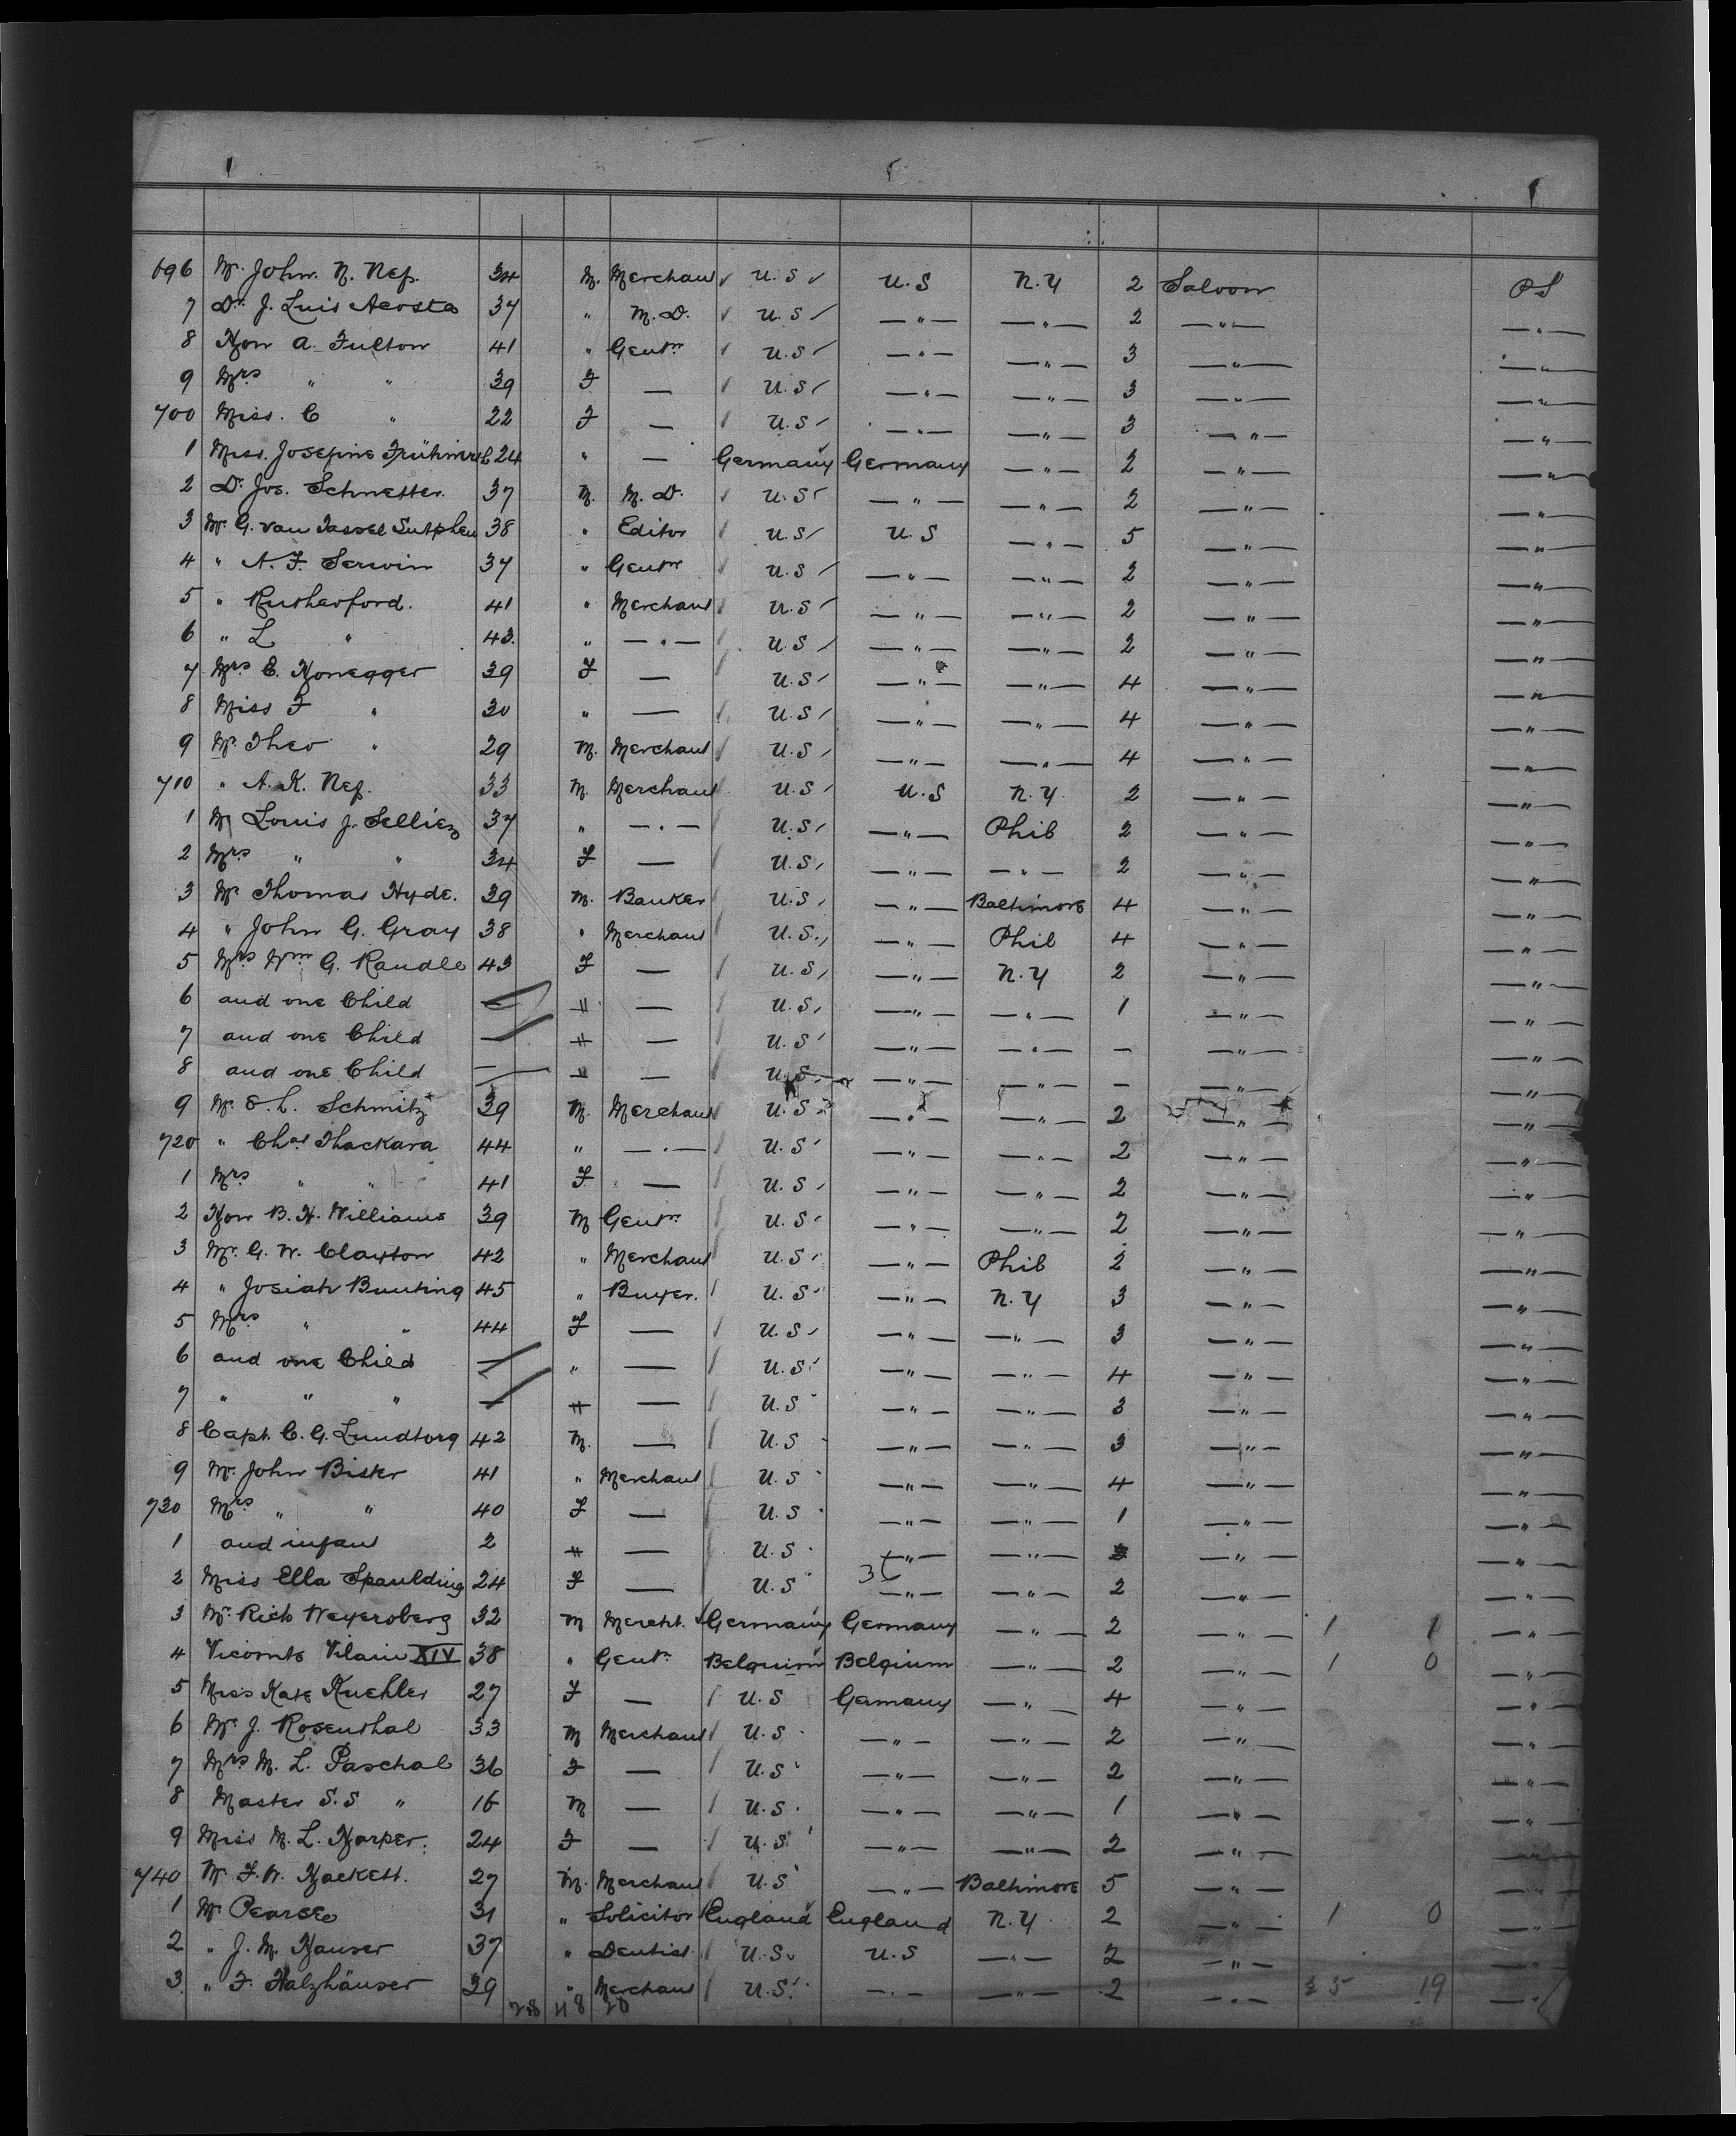 696 Mr. John. N. Nef. 34 M. Merchant U.S U.S N.Y 2 Saloon PS
7 Dr. J. Luis Acosta 37 " M.D. U.S —"— —"— 2 —"— —"—
8 Hon A. Fulton 41 " Gentn U.S —"— —"— 3 —"— —"—
9 Mrs " " 39 F — U.S —"— —"— 3 —"— —"—
700 Miss. C " 22 F — U.S —"— —"— 3 —"— —"—
1 Miss. Josefine 24 " — Germany Germany —"— 2 —"— —"—
2 Dr. Jos. Schnetter. 37 M. M.D. U.S —"— —"— 2 —"— —"—
3 Mr G. van Tassel Sutphen 38 " Editor U.S U.S —"— 5 —"— —"—
4 " A. F. Serwin 37 " Gentn U.S —"— —"— 2 —"— —"—
5 " Rutherford. 41 " Merchant U.S —"— —"— 2 —"— —"—
6 " L " 43. " —"— U.S —"— —"— 2 —"— —"—
7 Mrs C. Honegger 39 F — U.S —"— —"— 4 —"— —"—
8 Miss F " 30 " — U.S —"— —"— 4 —"— —"—
9 Mr. Theo " 29 M. Merchant U.S —"— —"— 4 —"— —"—
710 " A. K. Nef. 33 M. Merchant U.S U.S N.Y 2 —"— —"—
1 Mr Louis J. Selliez 37 " —"— U.S —"— Phil 2 —"— —"—
2 Mrs " " 34 F — U.S —"— —"— 2 —"— —"—
3 Mr. Thomas Hyde. 39 M. Banker U.S —"— Baltimore 4 —"— —"—
4 " John G. Gray 38 " Merchant U.S. —"— Phil 4 —"— —"—
5 Mrs Wm G. Randle 43 F — U.S —"— N.Y 2 —"— —"—
6 and one Child — " — U.S —"— —"— 1 —"— —"—
7 and one Child — " — U.S —"— —"— – —"— —"—
8 and one Child — " — U.S. —"— —"— – —"— —"—
9 Mr. E. L. Schmitz 39 M. Merchant U.S —"— —"— 2 —"— —"—
720 " Chas Thackara 44 " —"— U.S —"— —"— 2 —"— —"—
1 Mrs " " 41 F — U.S —"— —"— 2 —"— —"—
2 Hon B. H. Williams 39 M Gentn U.S —"— —"— 2 —"— —"—
3 Mr. G. W. Clayton 42 " Merchant U.S —"— Phil 2 —"— —"—
4 " Josiah Bunting 45 " Buyer. U.S —"— N.Y 3 —"— —"—
5 Mrs " " 44 F — U.S —"— —"— 3 —"— —"—
6 and one Child — " — U.S —"— —"— 4 —"— —"—
7 " " " — " — U.S —"— —"— 3 —"— —"—
8 Capt. C. G. Lundborg 42 M. — U.S —"— —"— 3 —"— —"—
9 Mr. John Bister 41 " Merchant U.S —"— —"— 4 —"— —"—
730 Mrs " " 40 F — U.S —"— —"— 1 —"— —"—
1 and infant 2 " — U.S —"— —"— —"— —"—
2 Miss Ella Spaulding 24 F — U.S —"— —"— 2 —"— —"—
3 Mr. Rich Weyersberg 32 M Mercht. Germany Germany —"— 2 —"— 1 1 —"—
4 Vicomte Vilain XIV 38 " Gentn Belgium Belgium —"— 2 —"— 1 0 —"—
5 Miss Kate Kuehler 27 F — U.S Germany —"— 4 —"— —"—
6 Mr. J. Rosenthal 33 M Merchant U.S —"— —"— 2 —"— —"—
7 Mrs M. L. Paschal 36 F — U.S —"— —"— 2 —"— —"—
8 Master S.S " 16 M — U.S —"— —"— 1 —"— —"—
9 Miss M. L. Harper. 24 F — U.S —"— —"— 2 —"— —"—
740 Mr. F. W. Hackett. 27 M. Merchant U.S —"— Baltimore 5 —"— —"—
1 Mr Pearse 31 " Solicitor England England N.Y 2 —"— 1 0 —"—
2 " J. M. Hauser 37 " Dentist U.S. U.S —"— 2 —"— —"—
3 " F. Halzhäuser 39 " Merchant U.S. —"— —"— 2 —"— 35 19 —"—
28 48 20